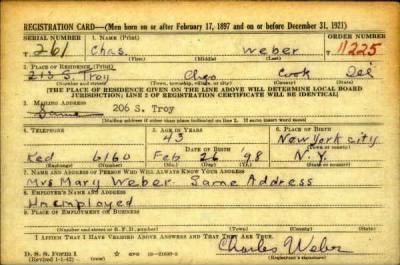 REGISTRATION CARD—(Men born on or after February 17, 1897 and on or before December 31, 1921)
SERIAL NUMBER 1. NAME (Print) ORDER NUMBER
T 261 Chas. Weber 11225
(First) (Middle) (Last)
2. PLACE OF RESIDENCE (Print)
213 S. Troy Chgo Cook Ill
(Number and street) (Town, township, village, or city) (County) (State)
[THE PLACE OF RESIDENCE GIVEN ON THE LINE ABOVE WILL DETERMINE LOCAL BOARD
JURISDICTION; LINE 2 OF REGISTRATION CERTIFICATE WILL BE IDENTICAL]
3. MAILING ADDRESS
Same 206 S. Troy
[Mailing address if other than place indicated on line 2. If same insert word same]
4. TELEPHONE 5. AGE IN YEARS 6. PLACE OF BIRTH
43 New York City
DATE OF BIRTH
Ked 6160 Feb 26 '98 N.Y.
7. NAME AND ADDRESS OF PERSON WHO WILL ALWAYS KNOW YOUR ADDRESS
Mrs Mary Weber Same Address
8. EMPLOYER'S NAME AND ADDRESS
Unemployed
9. PLACE OF EMPLOYMENT OR BUSINESS
(Number and street or R. F. D. number) (Town) (County) (State)
I AFFIRM THAT I HAVE VERIFIED ABOVE ANSWERS AND THAT THEY ARE TRUE.
D. S. S. Form 1 Charles Weber
(Revised 1-1-42) (Registrant's signature)